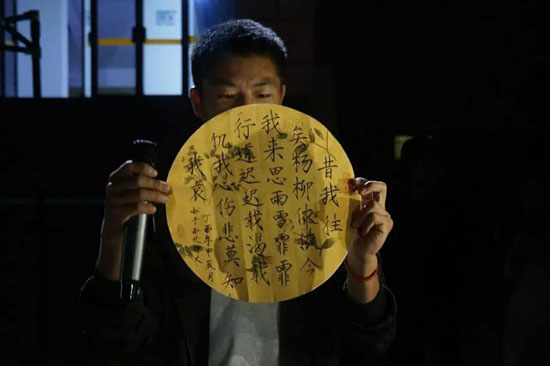 昔我往
矣杨柳依依今
我来思雨雪霏霏
行道迟迟载渴载
饥我心伤悲莫知
我哀
丁酉年月